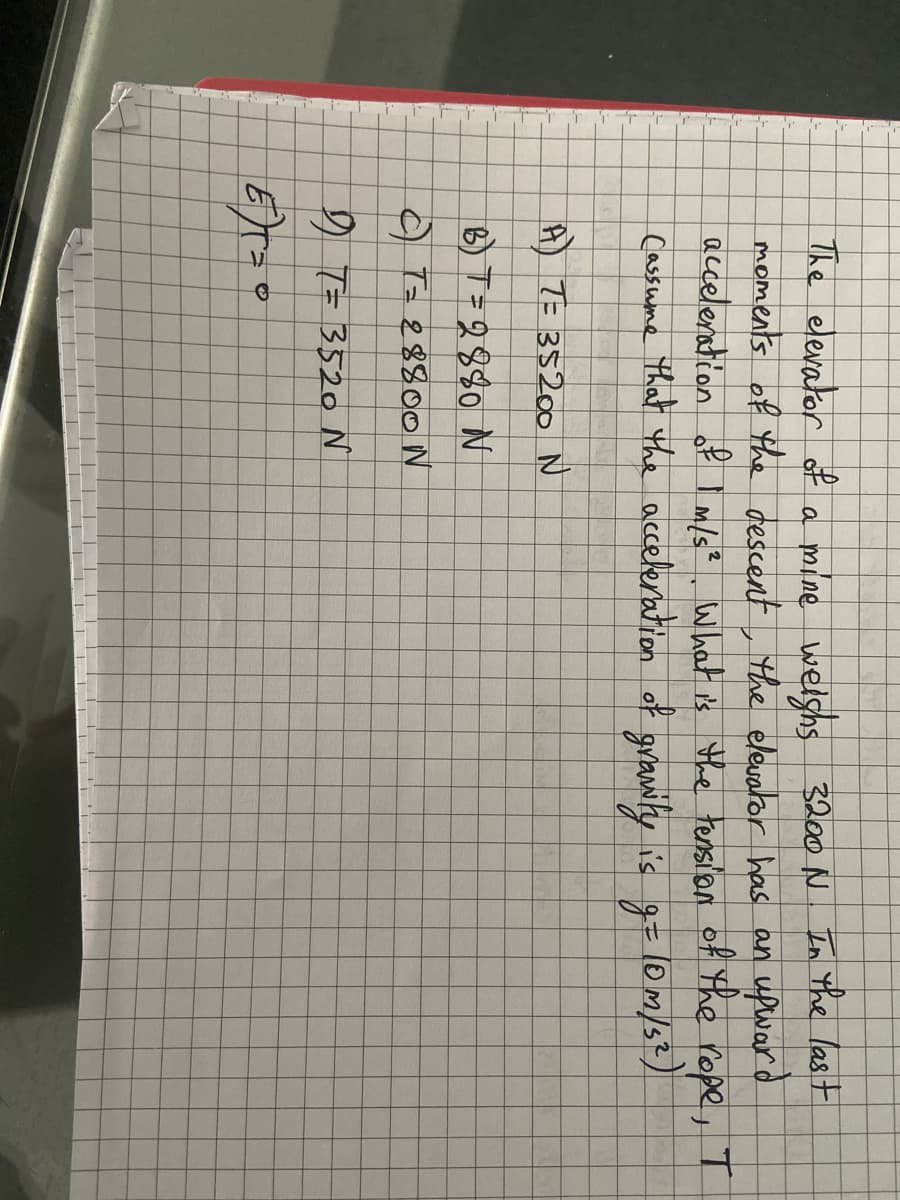 The elevator of a mine weighs 3200 N. In the last
moments of the descent, the elevator has an upward
acceleration of 1 m/s². What is the tension of the rope, T
(assume that the acceleration of gravity is g=10m/s²)
A) T= 35200 N
B) T=2880 N
C) T= 28800 N
D) T= 3520 N
E) T= 0